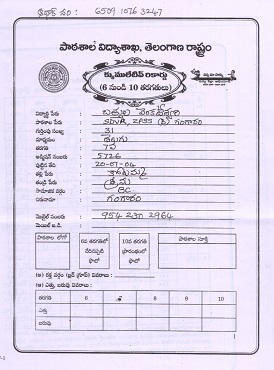 ఆధార్ నం: 6509 1076 3247
పాఠశాల విద్యాశాఖ, తెలంగాణ రాష్ట్రం
క్యుములేటివ్ రికార్డు
(6 నుండి 10 తరగతులు)
విద్యార్థి పేరు
పాఠశాల పేరు గంగారం
గుర్తింపు సంఖ్య 31
మాధ్యమం తెలుగు
తరగతి 7వ
అడ్మిషన్ నంబరు 5726
పుట్టిన తేది 20-07-04
తల్లి పేరు
తండ్రి పేరు
సామాజిక వర్గం BC
చిరునామా గంగారం
మొబైల్ నంబరు 954 237 2964
మెయిల్ ఐ.డి.
పాఠశాల లోగో
6వ తరగతిలో చేరినప్పటి ఫొటో
10వ తరగతి ప్రారంభంలో ఫొటో
పాఠశాల స్ఫూర్తి
(అ) రక్త వర్గం (బ్లడ్ గ్రూప్) వివరాలు :
(ఆ) ఎత్తు, బరువు వివరాలు :
తరగతి 6 8 9 10
ఎత్తు
బరువు